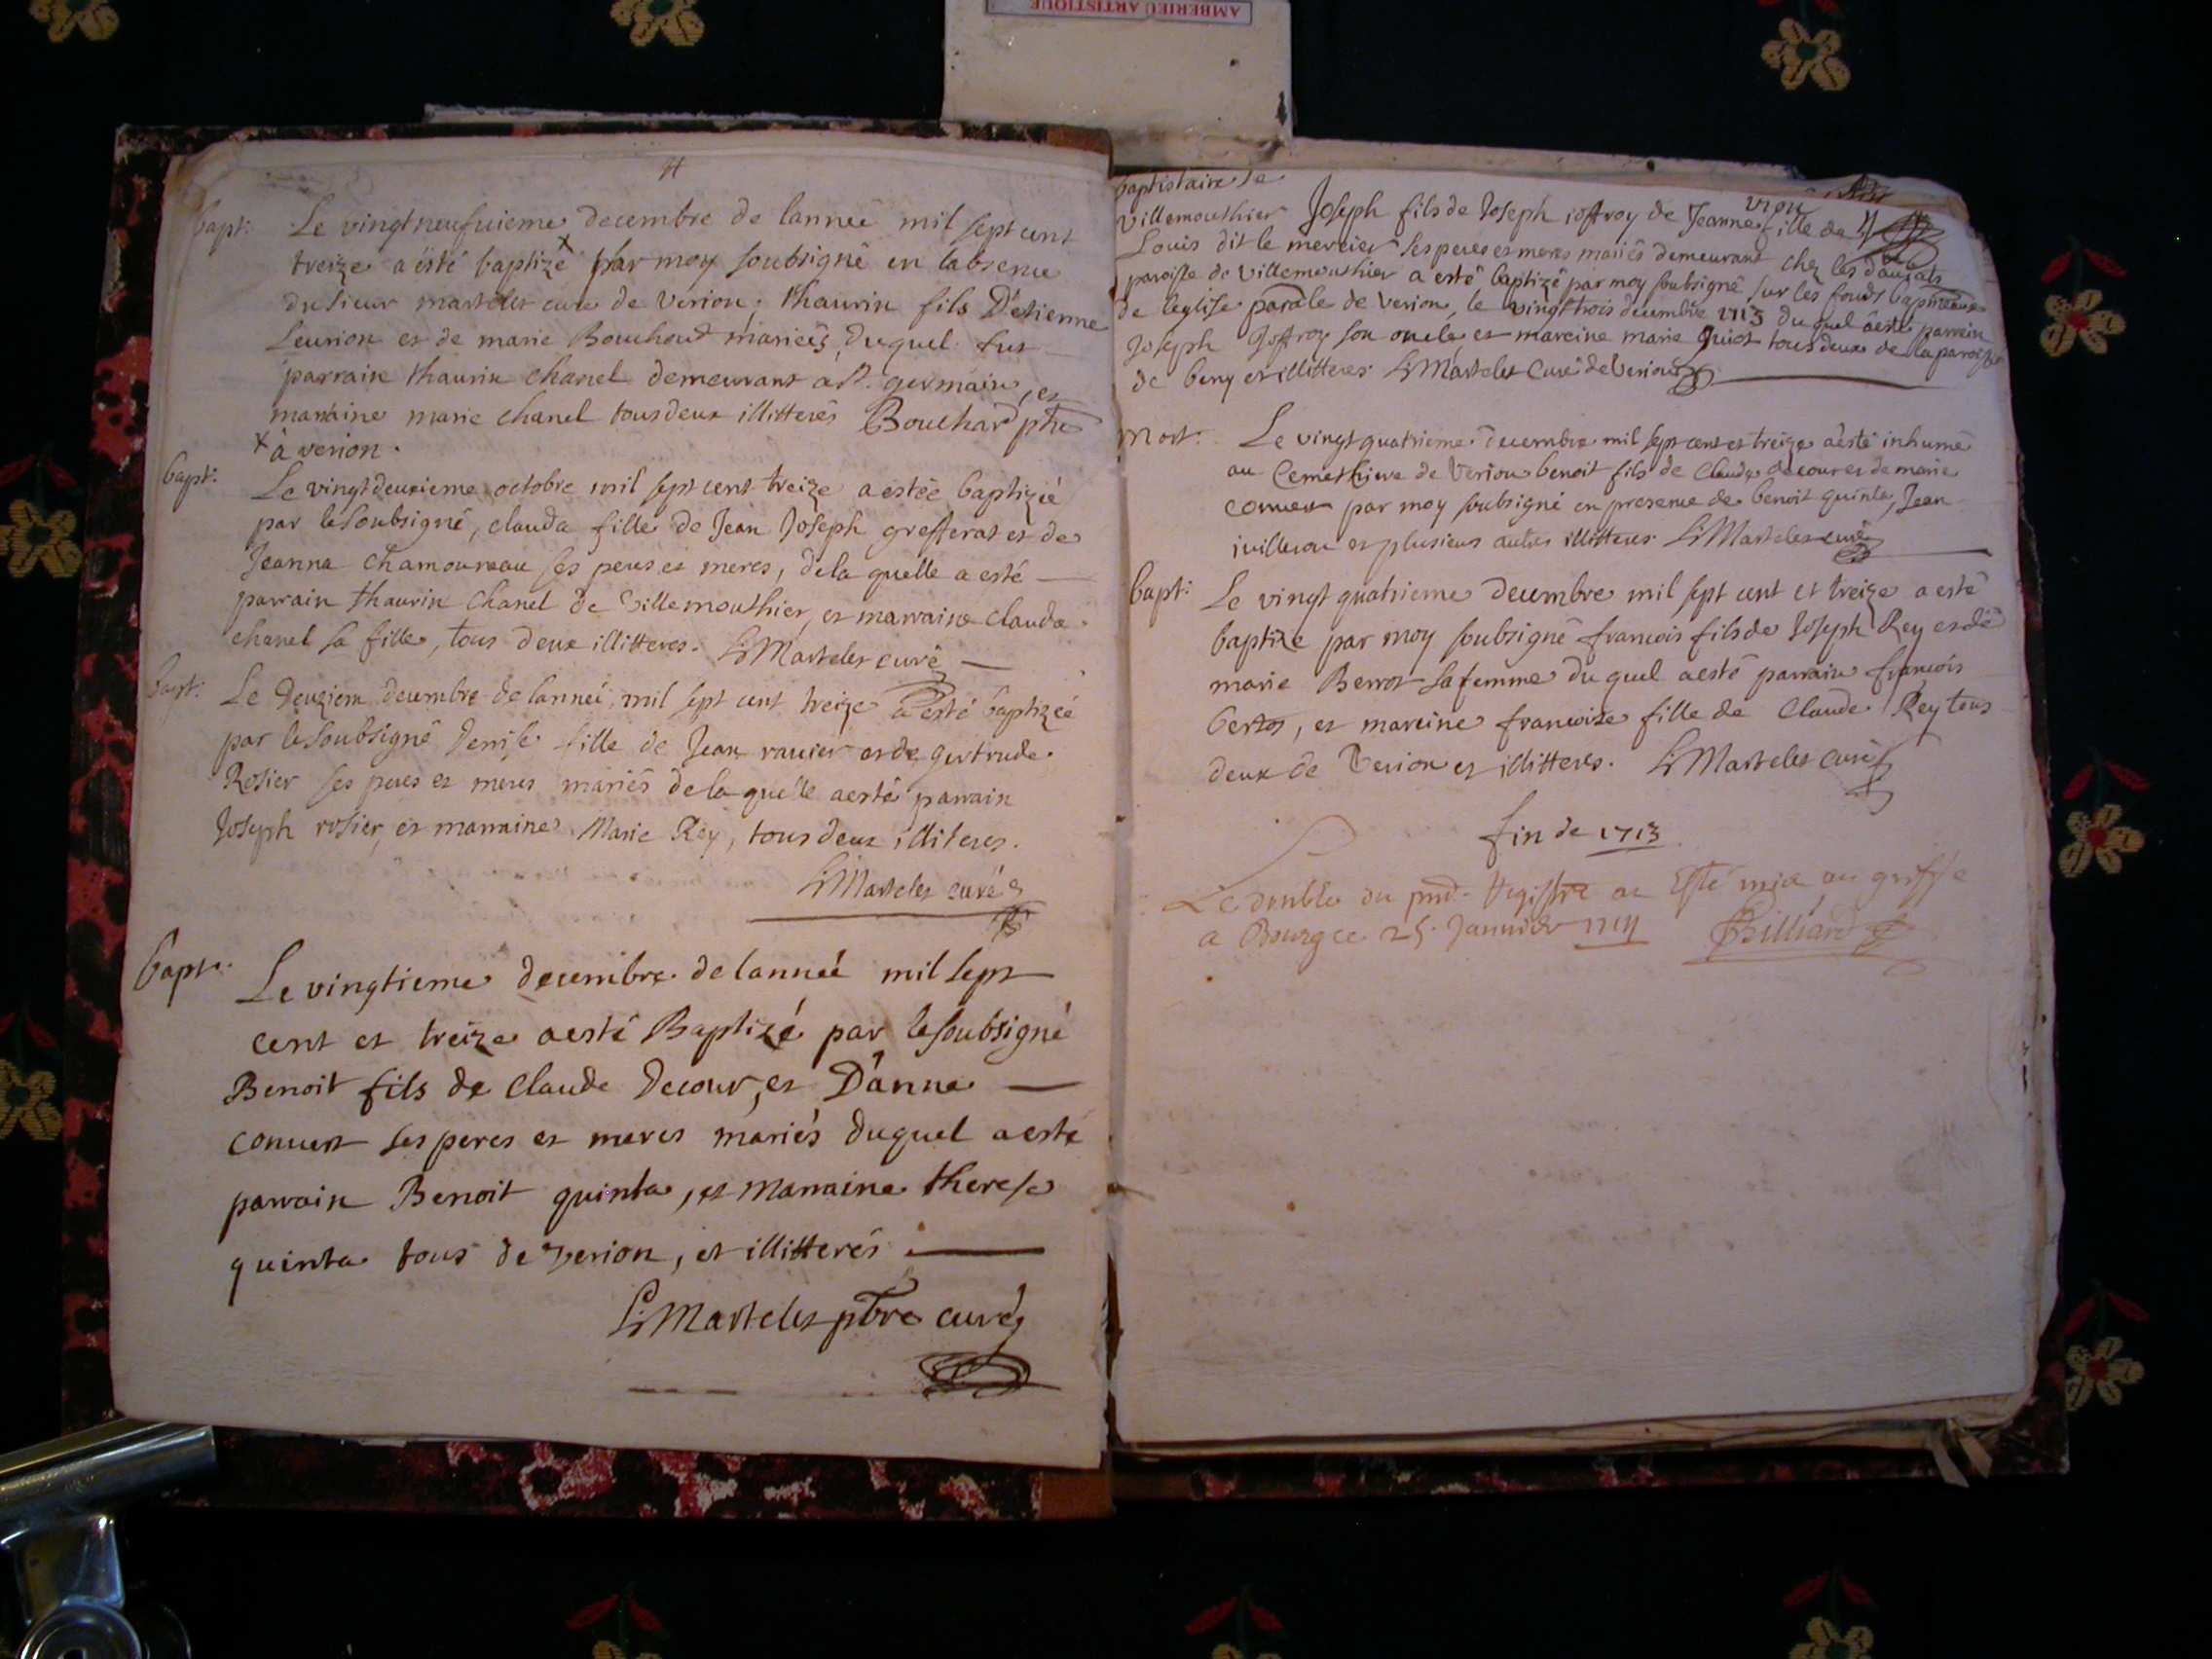 AMBERIEU ARTISTIQUE
bapt: Le vingt neufuieme decembre de lanneé mil sept cent
treize a ésté baptizé x par moy soubsigné en labsence
du sieur martelet curé de verion, thaurin fils D'etienne
Leurion et de marie Bouchoud mariéés, duquel fut
parrain thaurin chanel demeurant a st. germain, et
marraine marie chanel tous deux illitterés Bouchard pbre
x à verion.
bapt: Le vingt deuxieme octobre mil sept cent treize a estée baptizéé
par le soubsigné, clauda fille de Jean Joseph grefferat et de
Jeanna chamoureau ses peres et meres, de la quelle a esté
parrain thaurin chanel de villemouthier, et marraine clauda
chanel sa fille, tous deux illitteres. Martelet curé
bapt: Le deuziem decembre de lanneé mil sept cent treize a esté baptizéé
par le soubsigné denise fille de Jean ravier et de gertrude
Rosier ses peres et meres mariés de la quelle a esté parrain
Joseph rosier, et marraine Marie Rey, tous deux illiteres.
Martelet curé
bapt: Le vingtieme decembre de lanneé mil sept
cent et treize a esté Baptizé par le soubsigné
Benoit fils de claude Decour, et D'anne
convert ses peres et meres mariés duquel a esté
parrain Benoit quinta, et marraine therese
quinta tous de verion, et illitterés
Martelet pbre curé
baptistaire de
villemouthier Joseph fils de Joseph ioffroy de Jeanne viou fille de
Louis dit le mercier ses peres et meres mariés demeurant chez les daujats
paroisse de villemouthier a esté baptizé par moy soubsigné sur les fonds baptismaux
de leglise paroale de verion, le vingt trois decembre 1713 du quel a esté parrein
Joseph Joffroy son oncle et mareine marie guiot tous deux de la paroisse
de beny et illitteres Martelet Curé de Verion
Mort: Le vingt quatrieme decembre mil sept cent et treize a esté inhumé
au Cemethiere de Verion benoit fils de Claude decour et de marie
convert par moy soubsigné en presence de benoit quinta, Jean
iuilleron et plusieurs autres illitteres Martelet curé
bapt: Le vingt quatrieme decembre mil sept cent et treize a esté
baptize par moy soubsigné francois fils de Joseph Rey et de
marie Berrot sa femme du quel a esté parrain francois
bertot, et mareine francoise fille de Claude Rey tous
deux de Verion et illitteres. Martelet curé
fin de 1713
Le double du pnt. Registre a Esté mis au greffe
a Bourg ce 25. Janvier 1714 Billiard